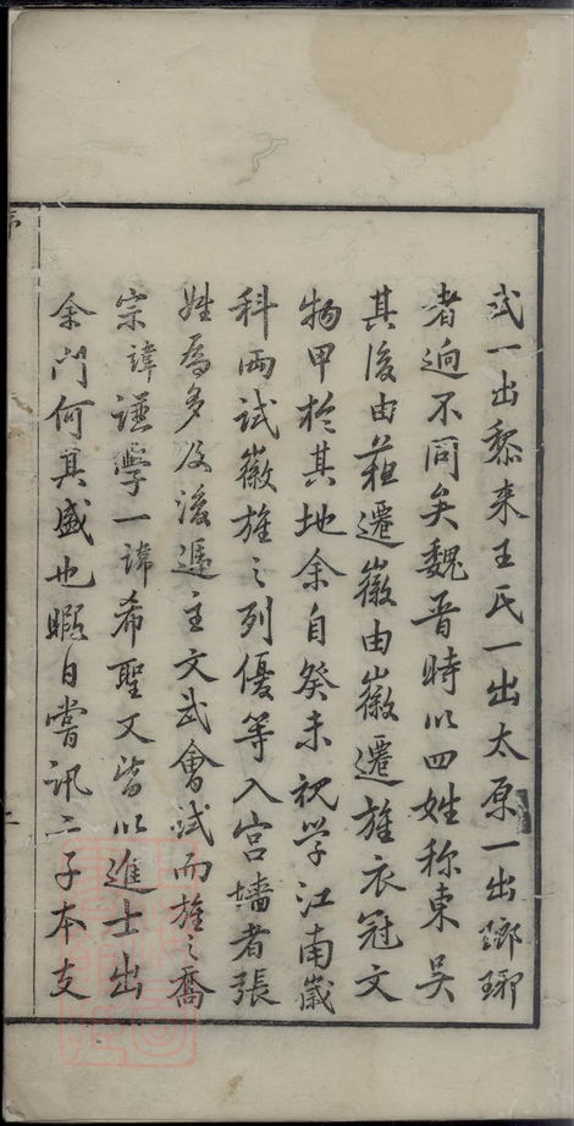 式一出黎来王氏一出太原一出瑯琊
者逈不同矣魏晋時以四姓称東吴
其後由蘓遷徽由徽遷旌衣冠文
物甲於其地余自癸未視学江南歲
科両試徽旌之列優等入宫墻者張
姓爲多及後遞主文武會試而旌之喬
宗諱謹學一諱希聖又皆以進士出
余门何其盛也暇日嘗訊二子本支